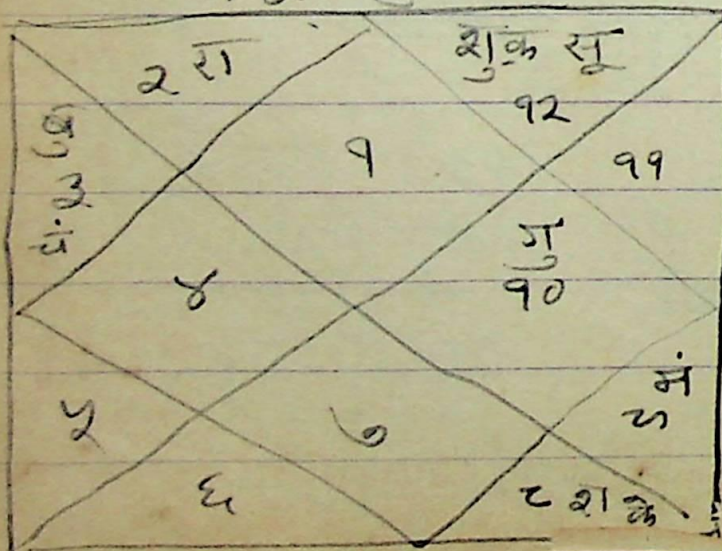 २ रा
शुक्र सू
१२
१
११
गु
१०
४
मं
५
७
६
८ श के